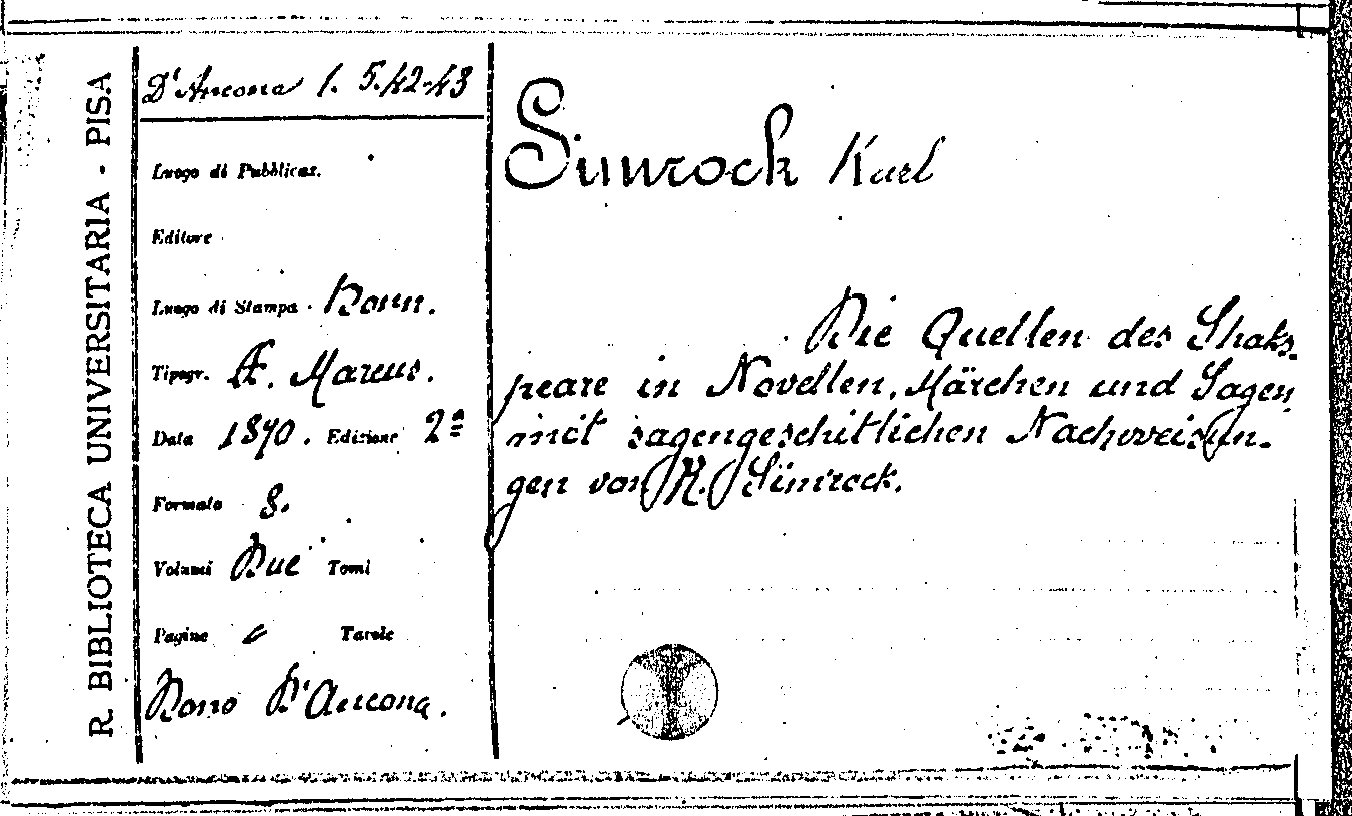 R. BIBLIOTECA UNIVERSITARIA - PISA
D'Ancona 1. 5.42-43
Luogo di Pubblicaz.
Editore
Luogo di Stampa Bonn.
Tipogr. A. Marcus.
Data 1870. Edizione 2ª
Formato 8.
Volumi Due Tomi
Pagine Tavole
Dono D'Ancona.
Simrock Karl
Die Quellen des Shaks-
peare in Novellen, Märchen und Sagen
mit sagengeschitlichen Nachweisun-
gen von K. Simrock.